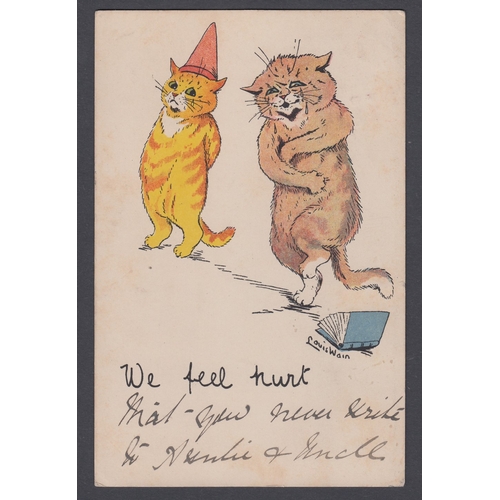 Louis Wain
We feel hurt
that - you never write
to Auntie & Uncle